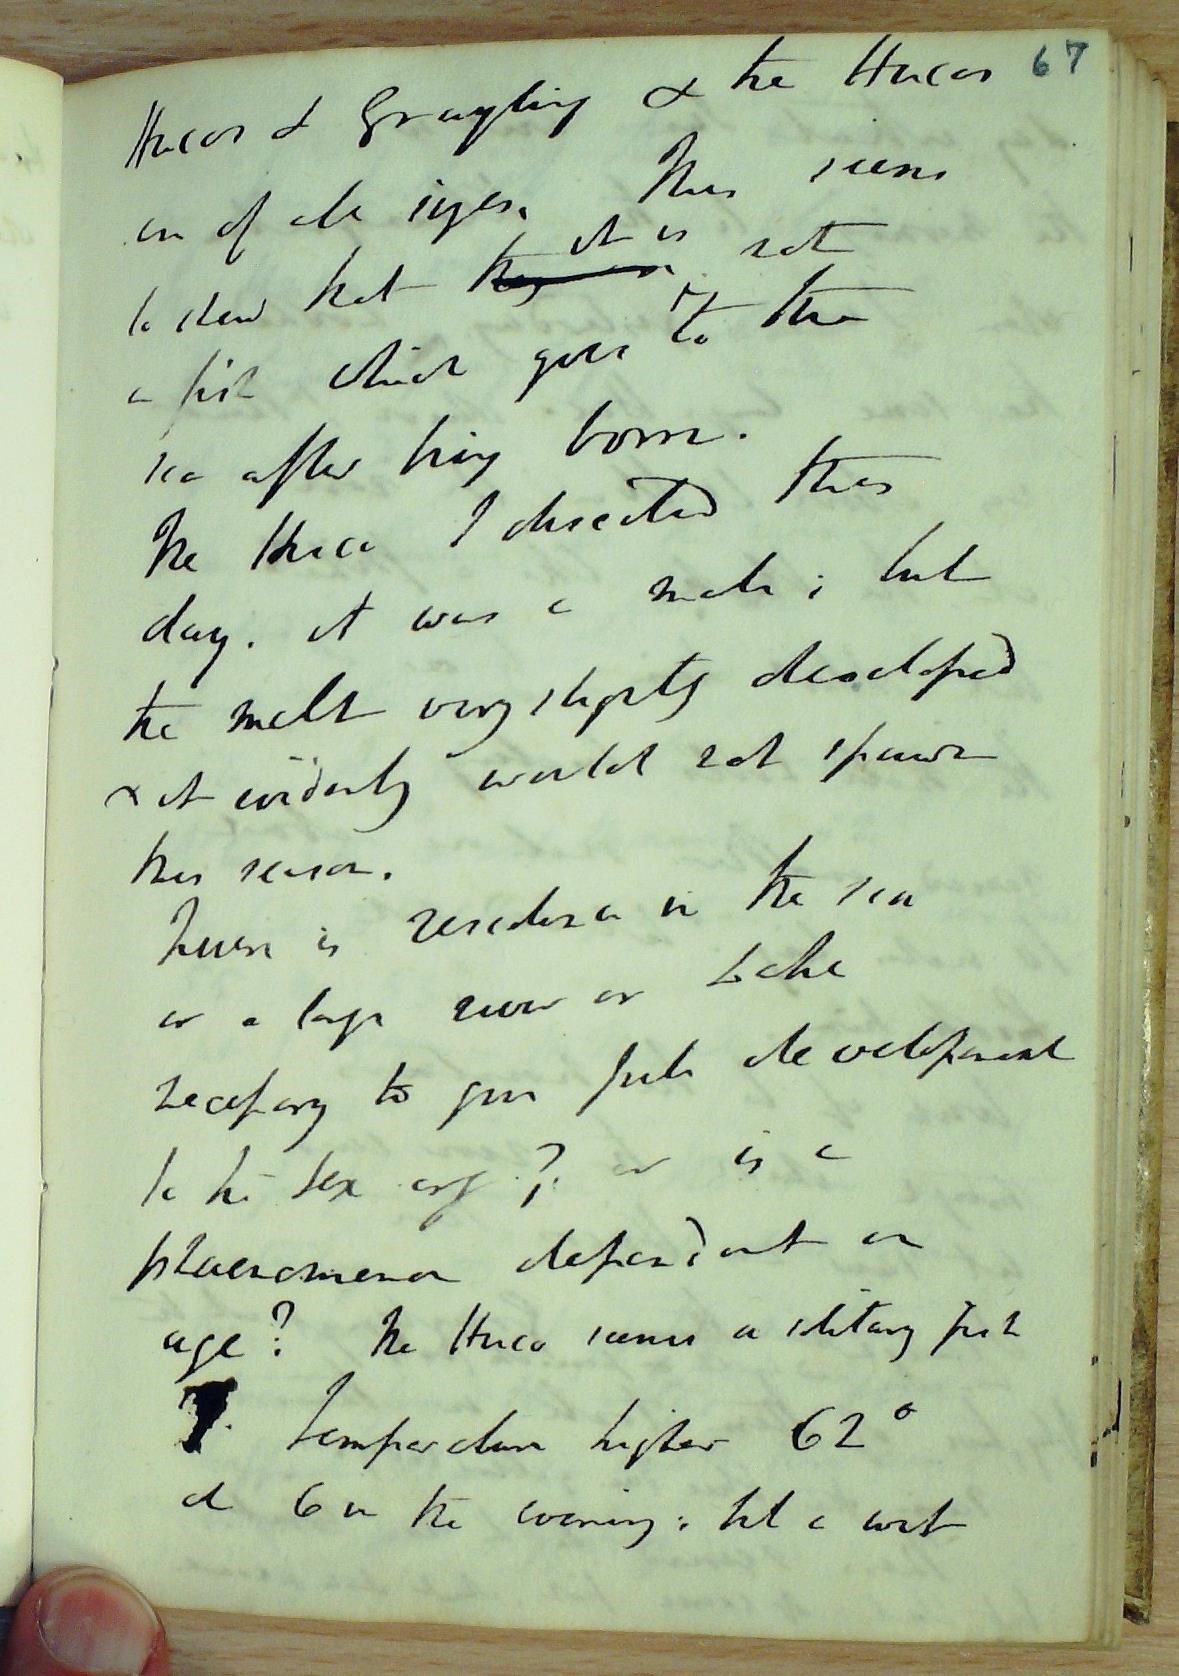 67
Hucos & Grayling & the Hucos
are of all sizes. This seems
to shew that they are it is not
a fish which goes to the
sea after being born.
The Huco I dissected this
day. it was a male; but
the melt very slightly developed
& it evidently would not spawn
this season.
is residence in the sea
or a large river or Lake
necessary to give full development
to the sex org ?; or is a
phaenomenon dependent on
age? The Huco seems a solitary fish
Temperature higher 62°
at 6 in the evening: but a wet